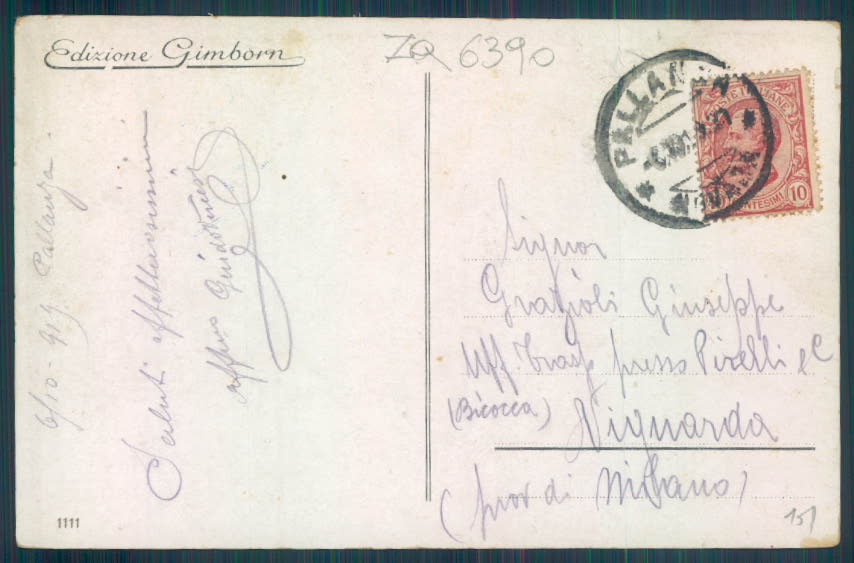 Edizione Gimborn
ZQ 6390
PALLANZA
NOVARA
POSTE ITALIANE
10
CENTESIMI
6/10-919 Pallanza
Saluti affettuosissimi
Guido
Signor
Grazioli Giuseppe
Uff. Trasp presso Pirelli e C
(Bicocca)
Niguarda
(prov di Milano)
1111
151